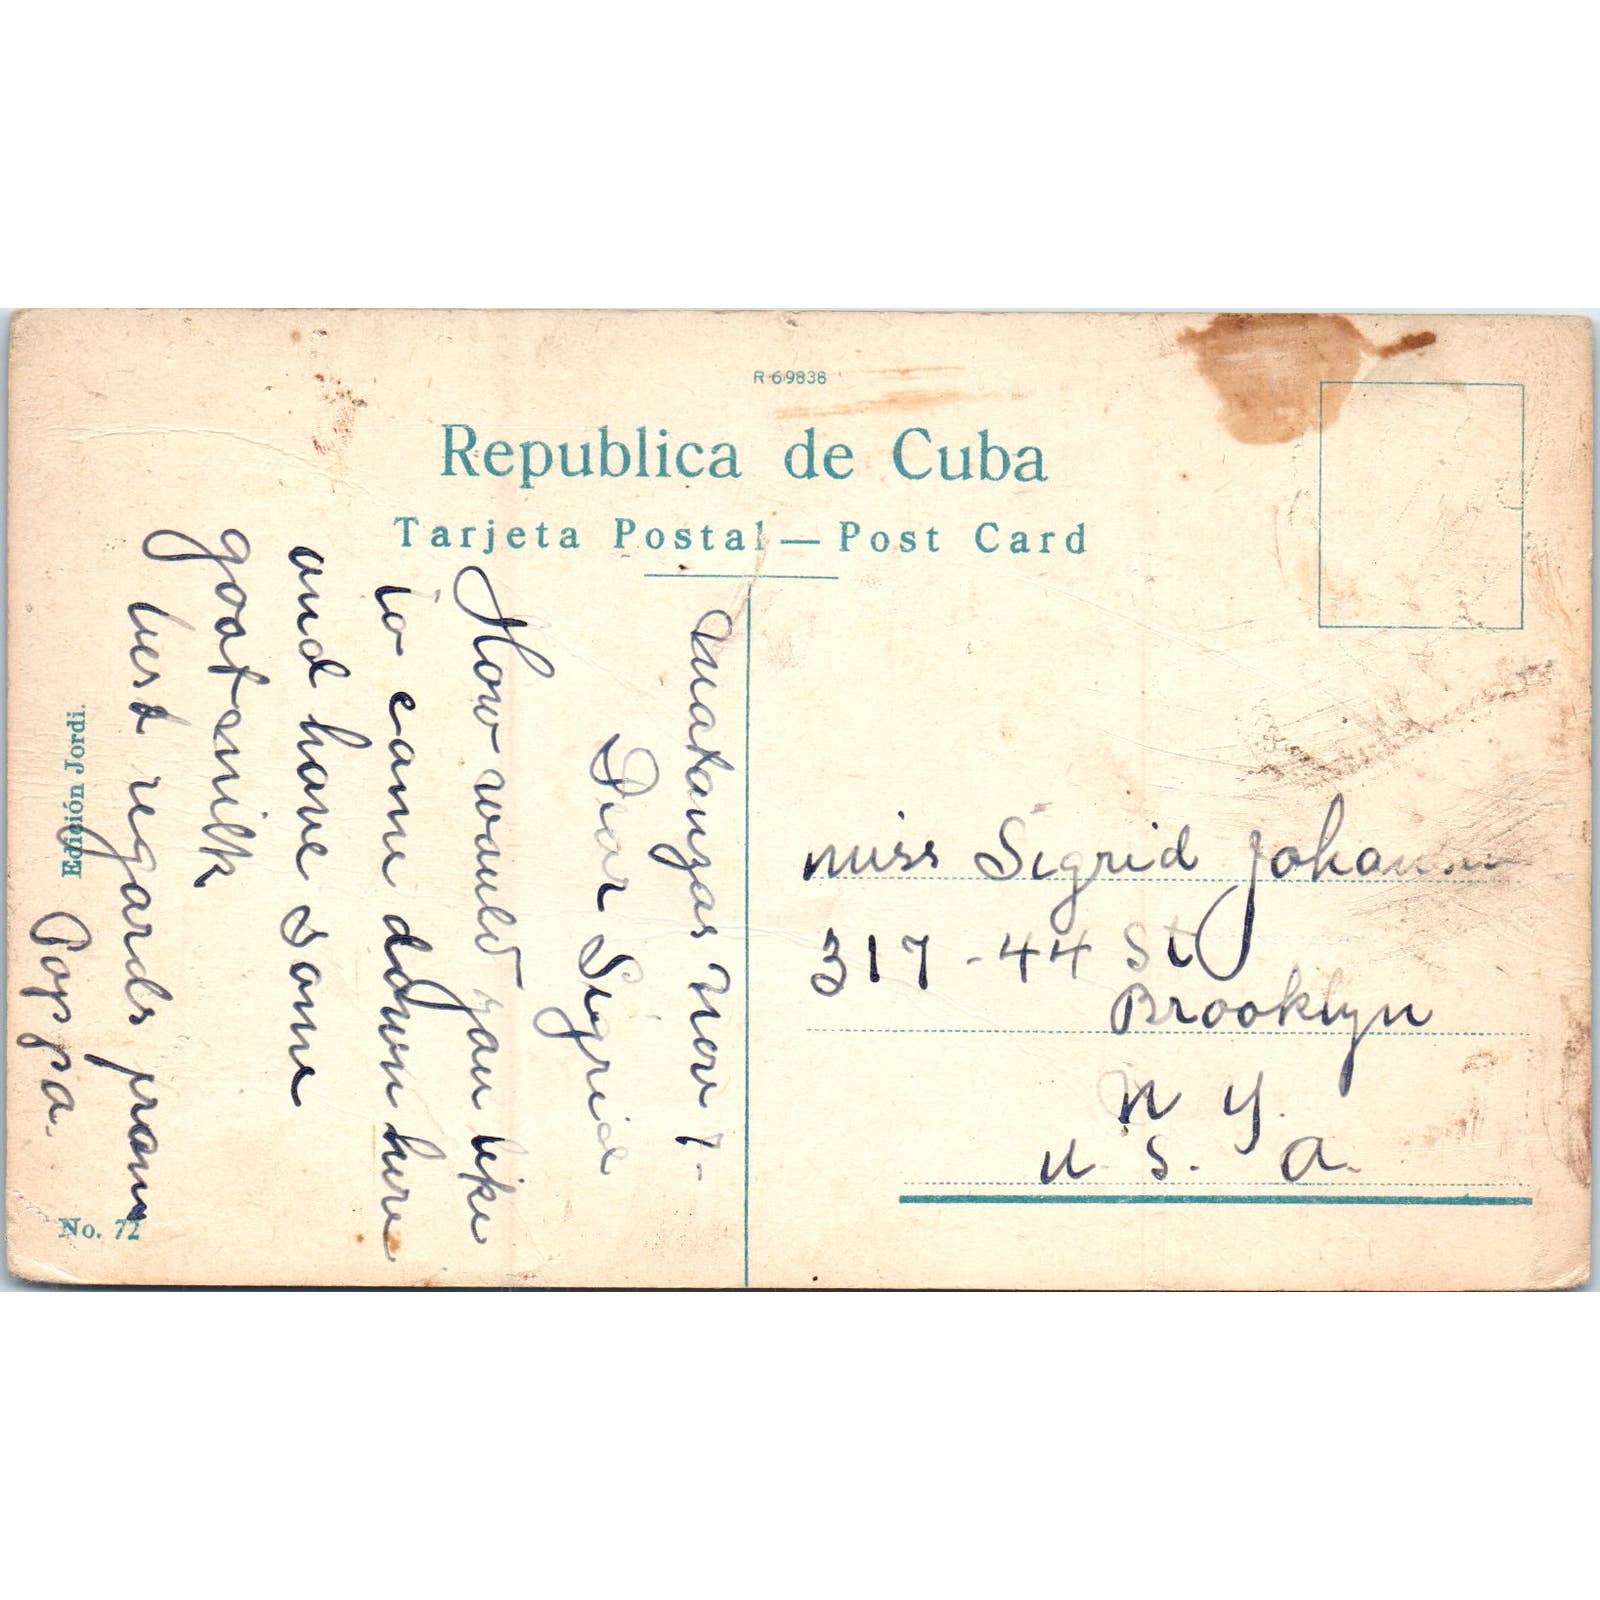 R-69838
Republica de Cuba
Tarjeta Postal — Post Card
Matanzas Nov 7-
Dear Sigrid
How would you like
to came ddwn here
and have some
goatsmilk
best regards from
Poppa.
miss Sigrid
317-44 St
Brooklyn
N Y.
U. S. A.
Edición Jordi.
No. 72